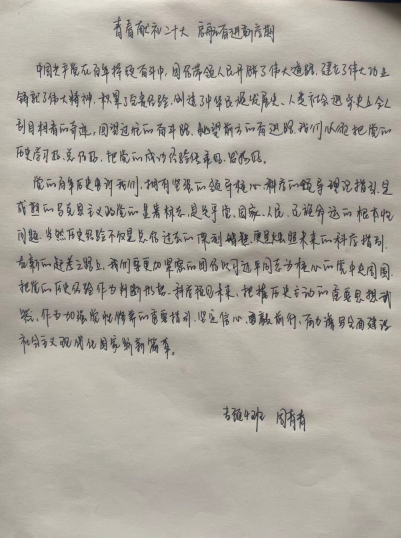 青春献礼二十大 启航奋进新序期
中国共产党在百年接续奋斗中，团结带领人民开辟了伟大道路，建立了伟大功业
铸就了伟大精神，积累了宝贵经验，创造了中华民族发展史、人类社会进步史上令人
刮目相看的奇迹，回望过往的奋斗路，眺望前方的奋进路，我们必须把党的
历史学习好、总结好，把党的成功经验传承好、发扬好。
党的百年历史告诉我们，拥有坚强的领导核心科学的领导理论指引，是
成熟的马克思主义政党的显著标志，是关乎党、国家、人民、民族命运的根本性
问题，当然历史经验不仅是总结过去的深刻 更是烛照未来的科学指引。
在新的赶考之路上，我们要更加紧密的团结以习近平同志为核心的党中央周围
把党的历史经验作为判断形势、科学预见未来、把握历史主动的重要思想武
器，作为加强党性修养的重要指引，坚定信心、勇毅前行，奋力谱写全面建设
社会主义现代化国家崭新篇章。
专硕4班 周青青